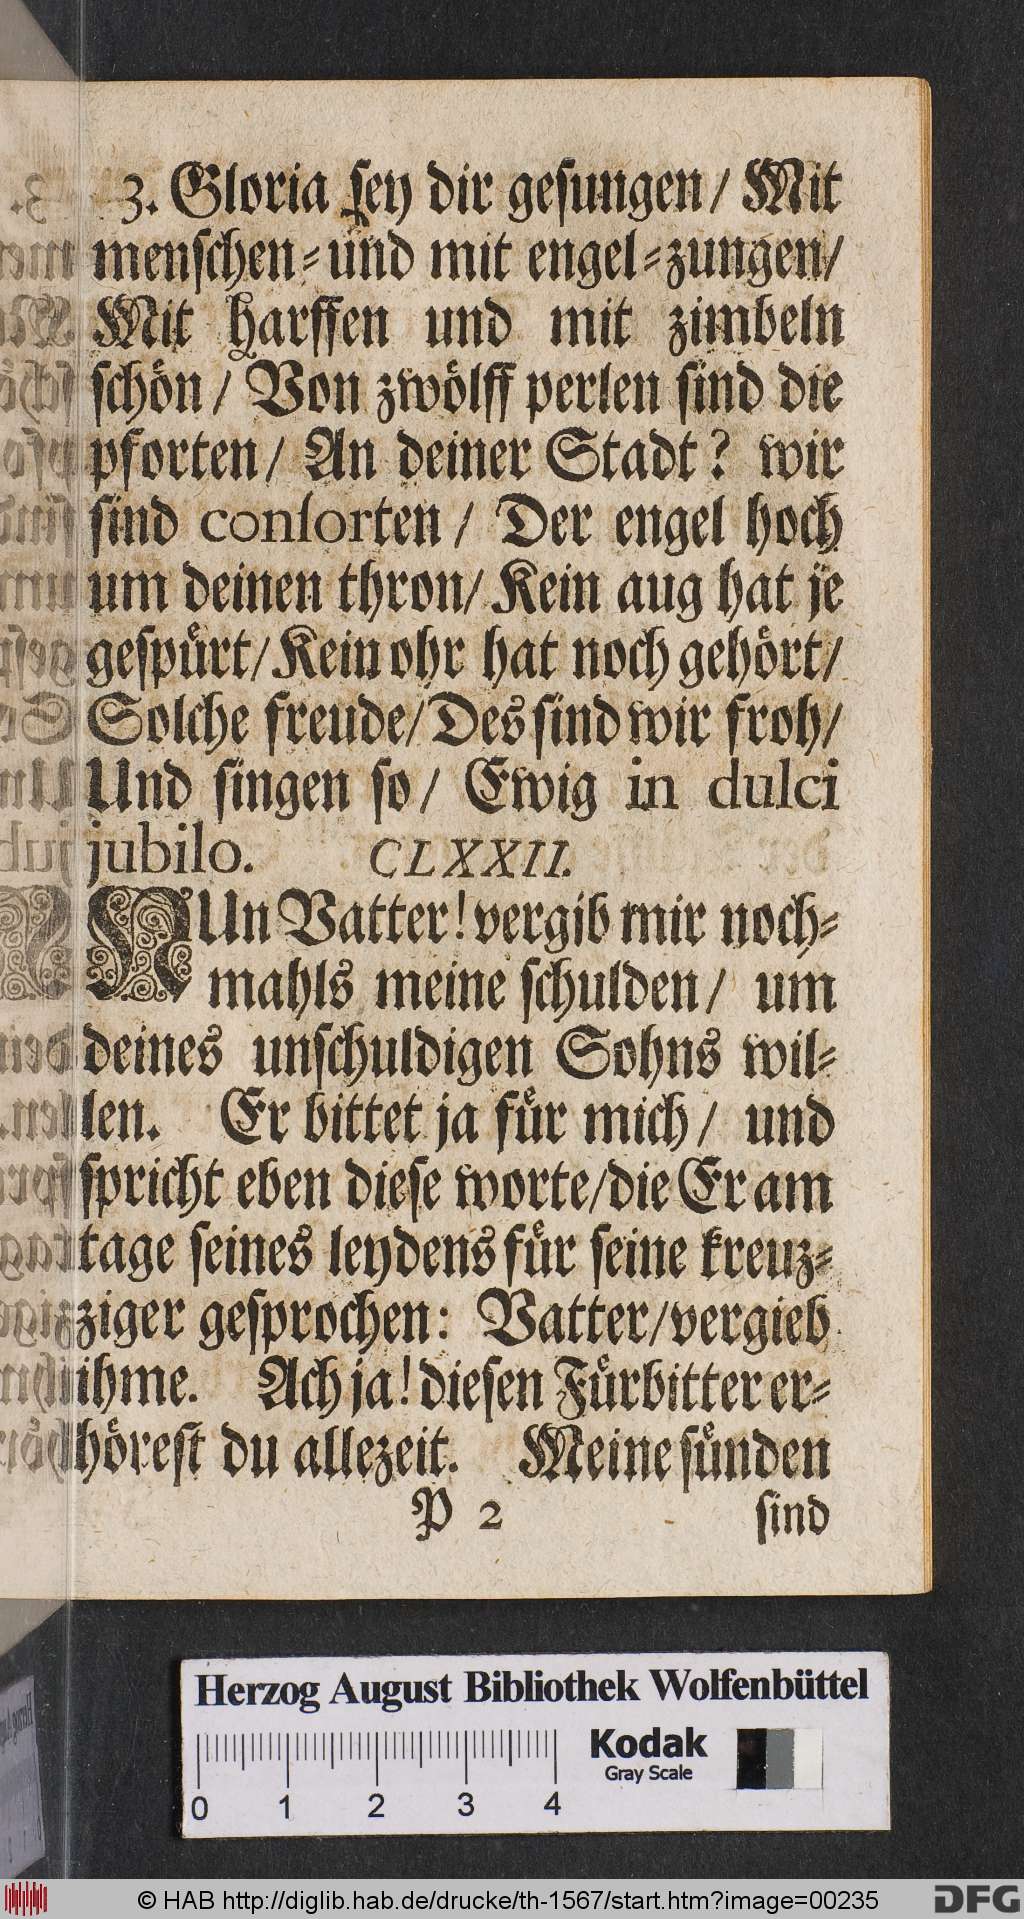 3. Gloria sey dir gesungen / Mit
menschen-und mit engel-zungen/
Mit harffen und mit zimbeln
schön / Von zwölff perlen sind die
pforten / An deiner Stadt? wir
sind consorten / Der engel hoch
um deinen thron / Kein aug hat je
gespürt / Kein ohr hat noch gehört /
Solche freude / Des sind wir froh /
Und singen so / Ewig in dulci
jubilo. CLXXII.
NUn Vatter! vergib mir noch-
mahls meine schulden / um
deines unschuldigen Sohns wil-
len. Er bittet ja für mich / und
spricht eben diese worte / die Er am
tage seines leydens für seine kreuz-
ziger gesprochen: Vatter / vergieb
ihme. Ach ja! diesen Fürbitter er-
hörest du allezeit. Meine sünden
P 2 sind
Herzog August Bibliothek Wolfenbüttel
Kodak
Gray Scale
0 1 2 3 4
© HAB http://diglib.hab.de/drucke/th-1567/start.htm?image=00235
DFG